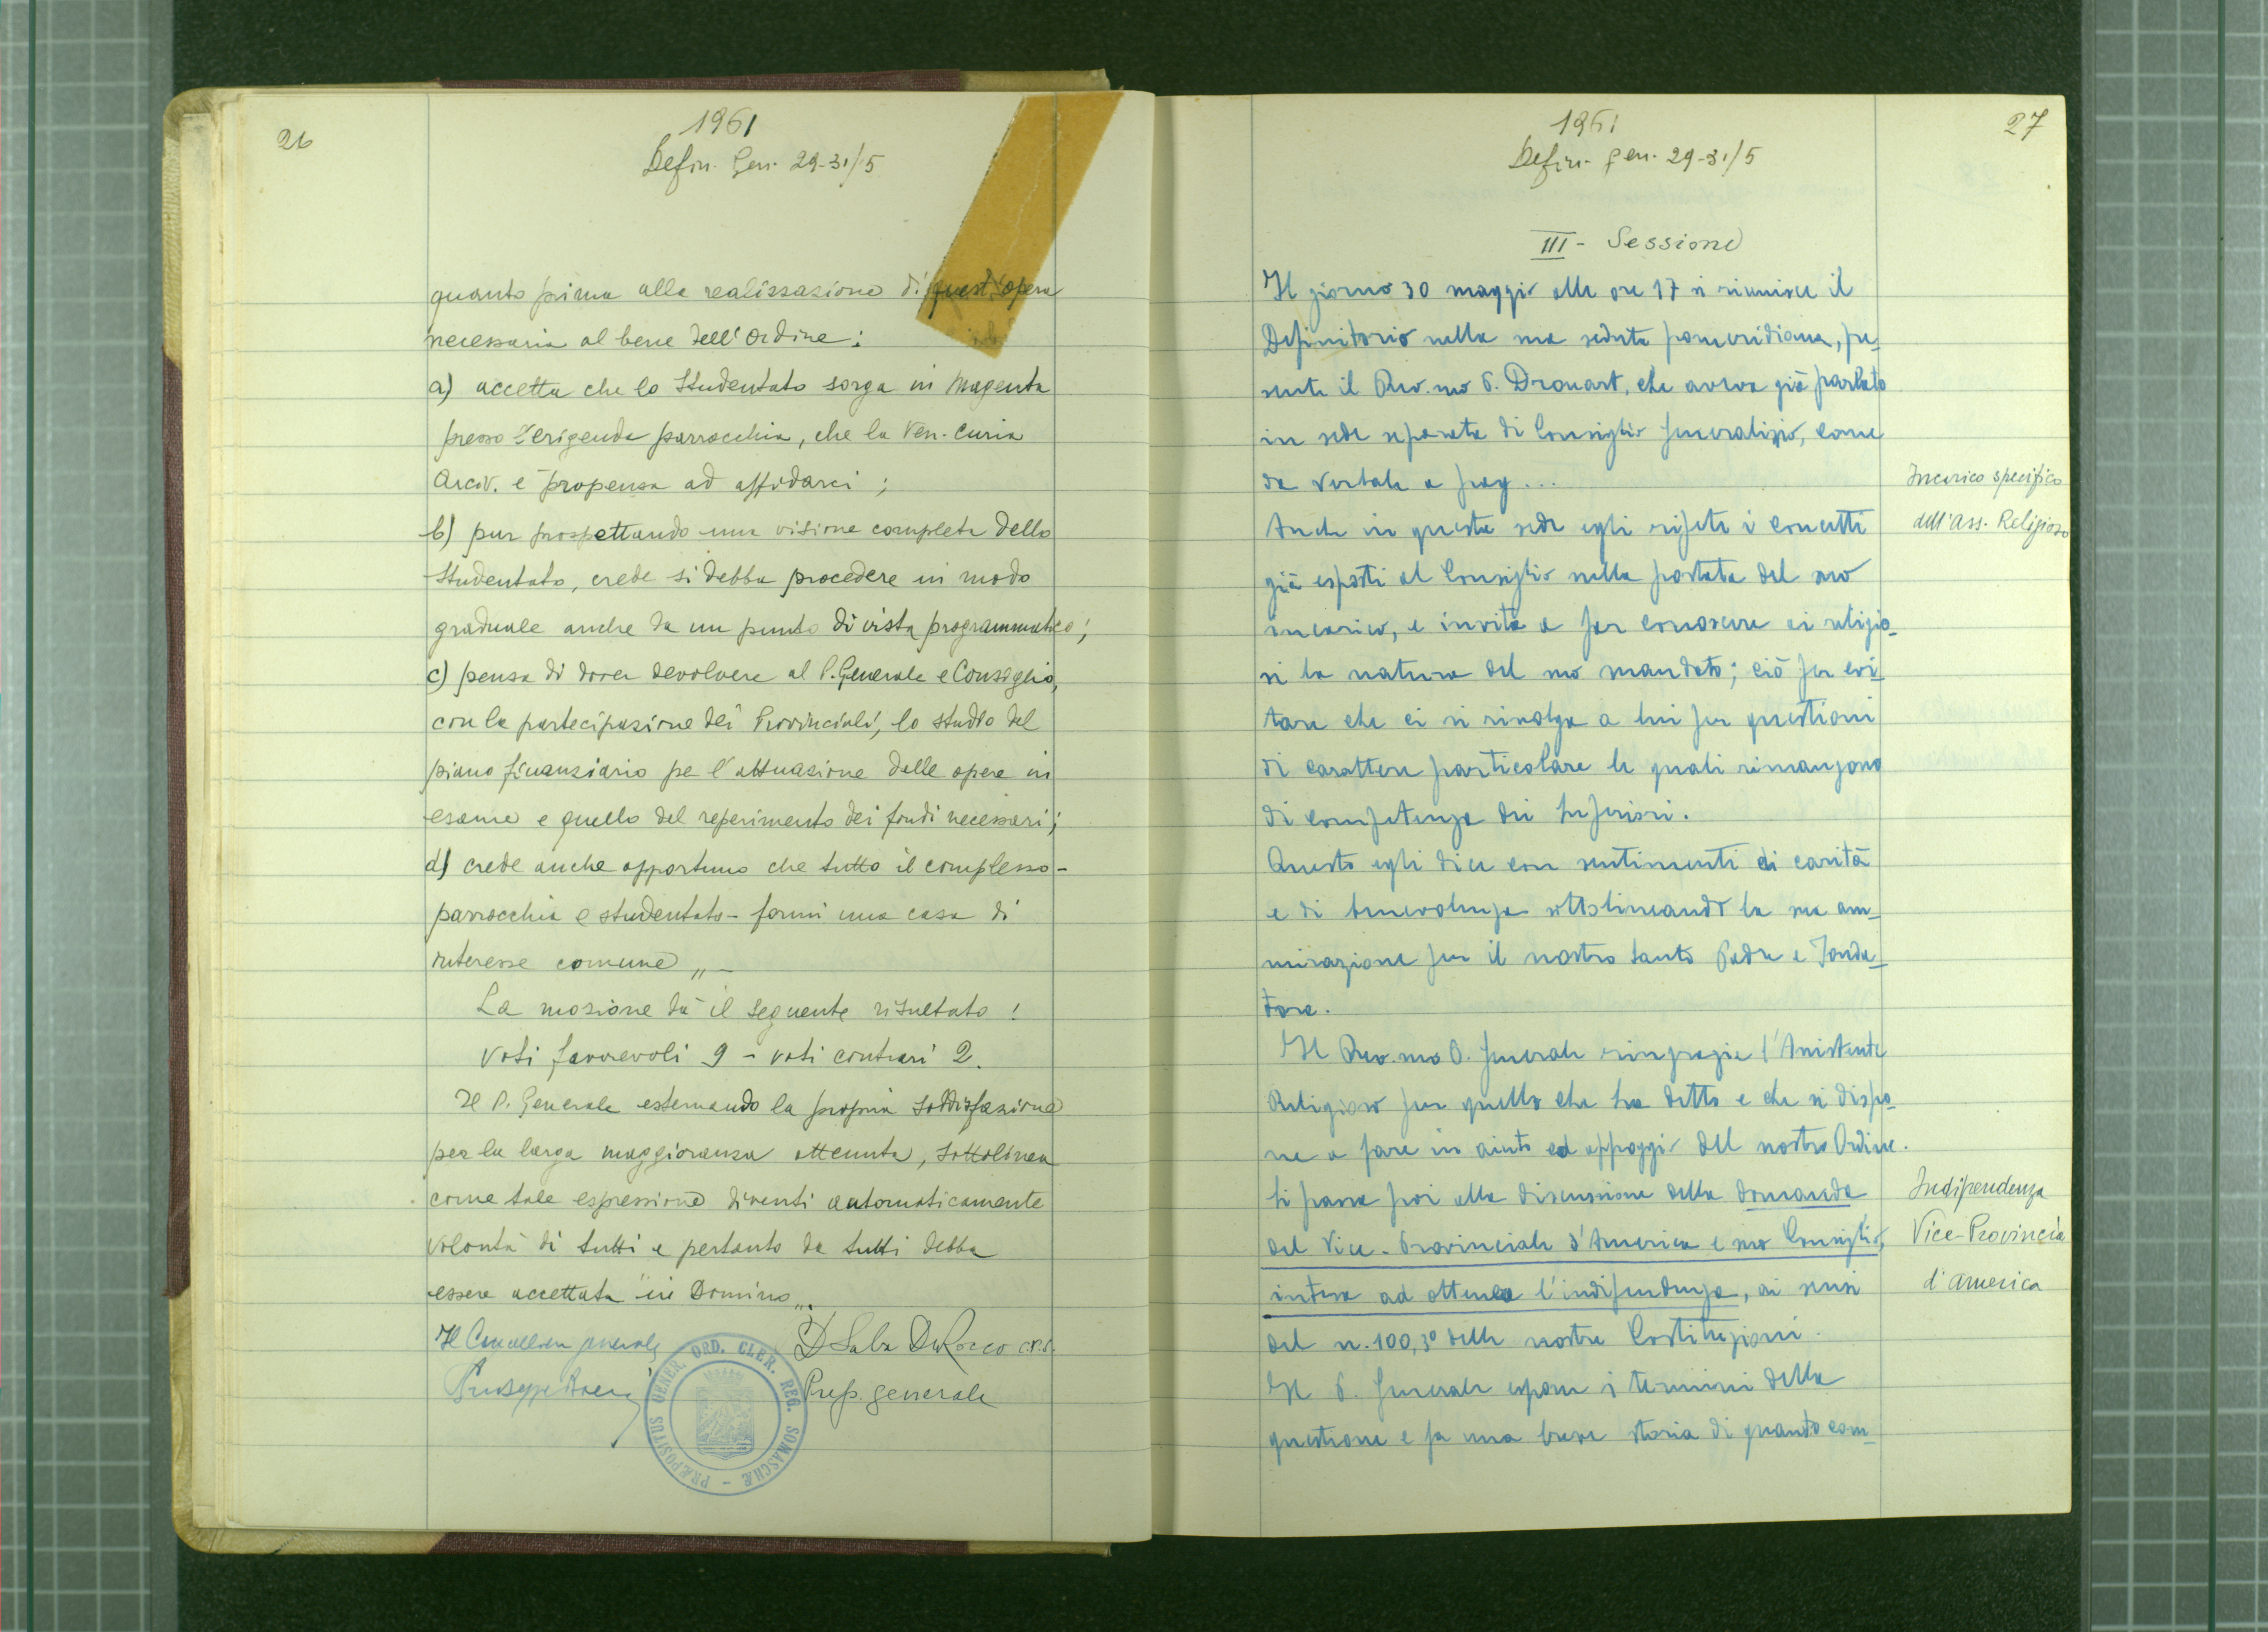 26
1961
Defin. Gen. 29-31/5
quanto prima alla realizzazione di quest'opera
necessaria al bene dell'Ordine:
a) accetta che lo Studentato sorga in Magenta
presso l'erigenda parrocchia, che la Ven. Curia
Arciv. è propensa ad affidarci;
b) pur prospettando una visione completa dello
Studentato, crede si debba procedere in modo
graduale anche da un punto di vista programmatico;
c) pensa di dover devolvere al P. Generale e Consiglio,
con la partecipazione dei Provinciali, lo studio del
piano finanziario pe l'attuazione delle opere in
esame e quello del reperimento dei fondi necessari;
d) crede anche opportuno che tutto il complesso -
parrocchia e studentato - formi una casa di
interesse comune „ -
La mozione dà il seguente risultato:
Voti favorevoli 9 - voti contrari 2.
Il P. Generale esternando la propria soddisfazione
per la larga maggioranza ottenuta, sottolinea
come tale espressione diventi automaticamente
volontà di tutti e pertanto da tutti debba
essere accettata "in Domino„.
Il Cancelliere generale
P. Saba De Rocco crs.
Giuseppe
Prep. generale
PRÆPOSITUS GENER. ORD. CLER. REG. SOMASCHÆ
27
1961
Defin. gen. 29-31/5
III - Sessione
Il giorno 30 maggio alle ore 17 si riunisce il
Definitorio nella sua seduta pomeridiana, pre-
sente il Rev.mo P. Drouart, che aveva già parlato
in sede separata di Consiglio generalizio, come
da verbale a pag...
Incarico specifico
dell'Ass. Religioso
Anche in questa sede egli ripete i concetti
già esposti al Consiglio sulla portata del suo
incarico, e invita a far conoscere ai religio-
si la natura del suo mandato; ciò per evi-
tare che ci si rivolga a lui per questioni
di carattere particolare le quali rimangono
di competenza dei Superiori.
Questo egli dice con sentimenti di carità
e di benevolenza sottolineando la sua am-
mirazione per il nostro Santo Padre e Fonda-
tore.
Il Rev.mo P. Generale ringrazia l'Assistente
Religioso per quello che ha detto e che si dispo-
ne a fare in aiuto ed appoggio del nostro Ordine.
Si passa poi alla discussione della domanda
del Vice-Provinciale d'America e suo Consiglio,
intesa ad ottenere l'indipendenza, ai sensi
del n. 100,3° delle nostre Costituzioni.
Indipendenza
Vice-Provincia
d'America
Il P. Generale espone i termini della
questione e fa una breve storia di quanto com-